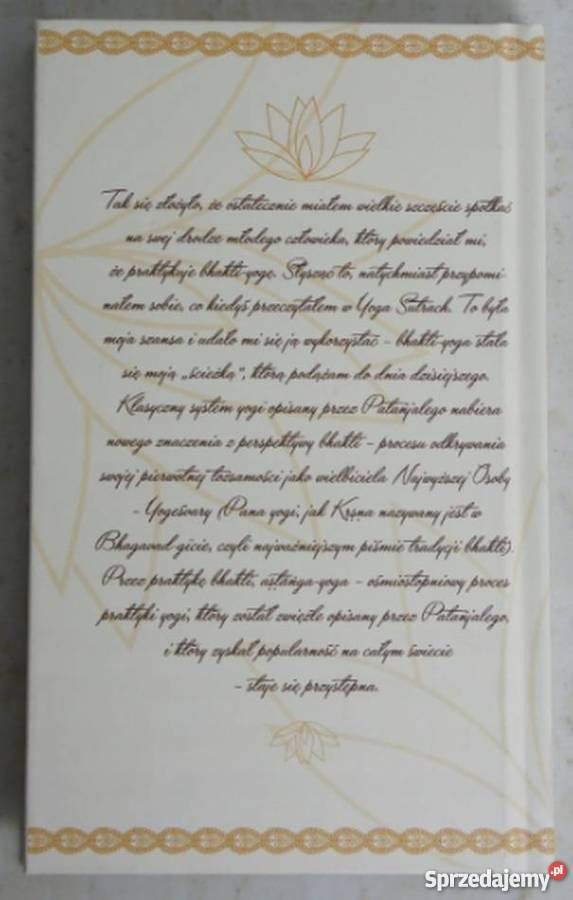 Tak się złożyło, że ostatecznie miałem wielkie szczęście spotkać
na swej drodze młodego człowieka, który powiedział mi,
że praktykuje bhakti-yogę. Słysząc to, natychmiast przypomi-
nałem sobie, co kiedyś przeczytałem w Yoga Sutrach. To była
moja szansa i udało mi się ją wykorzystać – bhakti-yoga stała
się moją „ścieżką”, którą podążam do dnia dzisiejszego.
Klasyczny system yogi opisany przez Patañjalego nabiera
nowego znaczenia z perspektywy bhakti – procesu odkrywania
swojej pierwotnej tożsamości jako wielbiciela Najwyższej Osoby
– Yogeśvary (Pana yogi, jak Kṛṣṇa nazywany jest w
Bhagavad-gīcie, czyli najważniejszym piśmie tradycji bhakti).
Przez praktykę bhakti, aṣṭāṅga-yoga – ośmiostopniowy proces
praktyki yogi, który został zwięźle opisany przez Patañjalego,
i który zyskał popularność na całym świecie
– staje się przystępna.
Sprzedajemy.pl